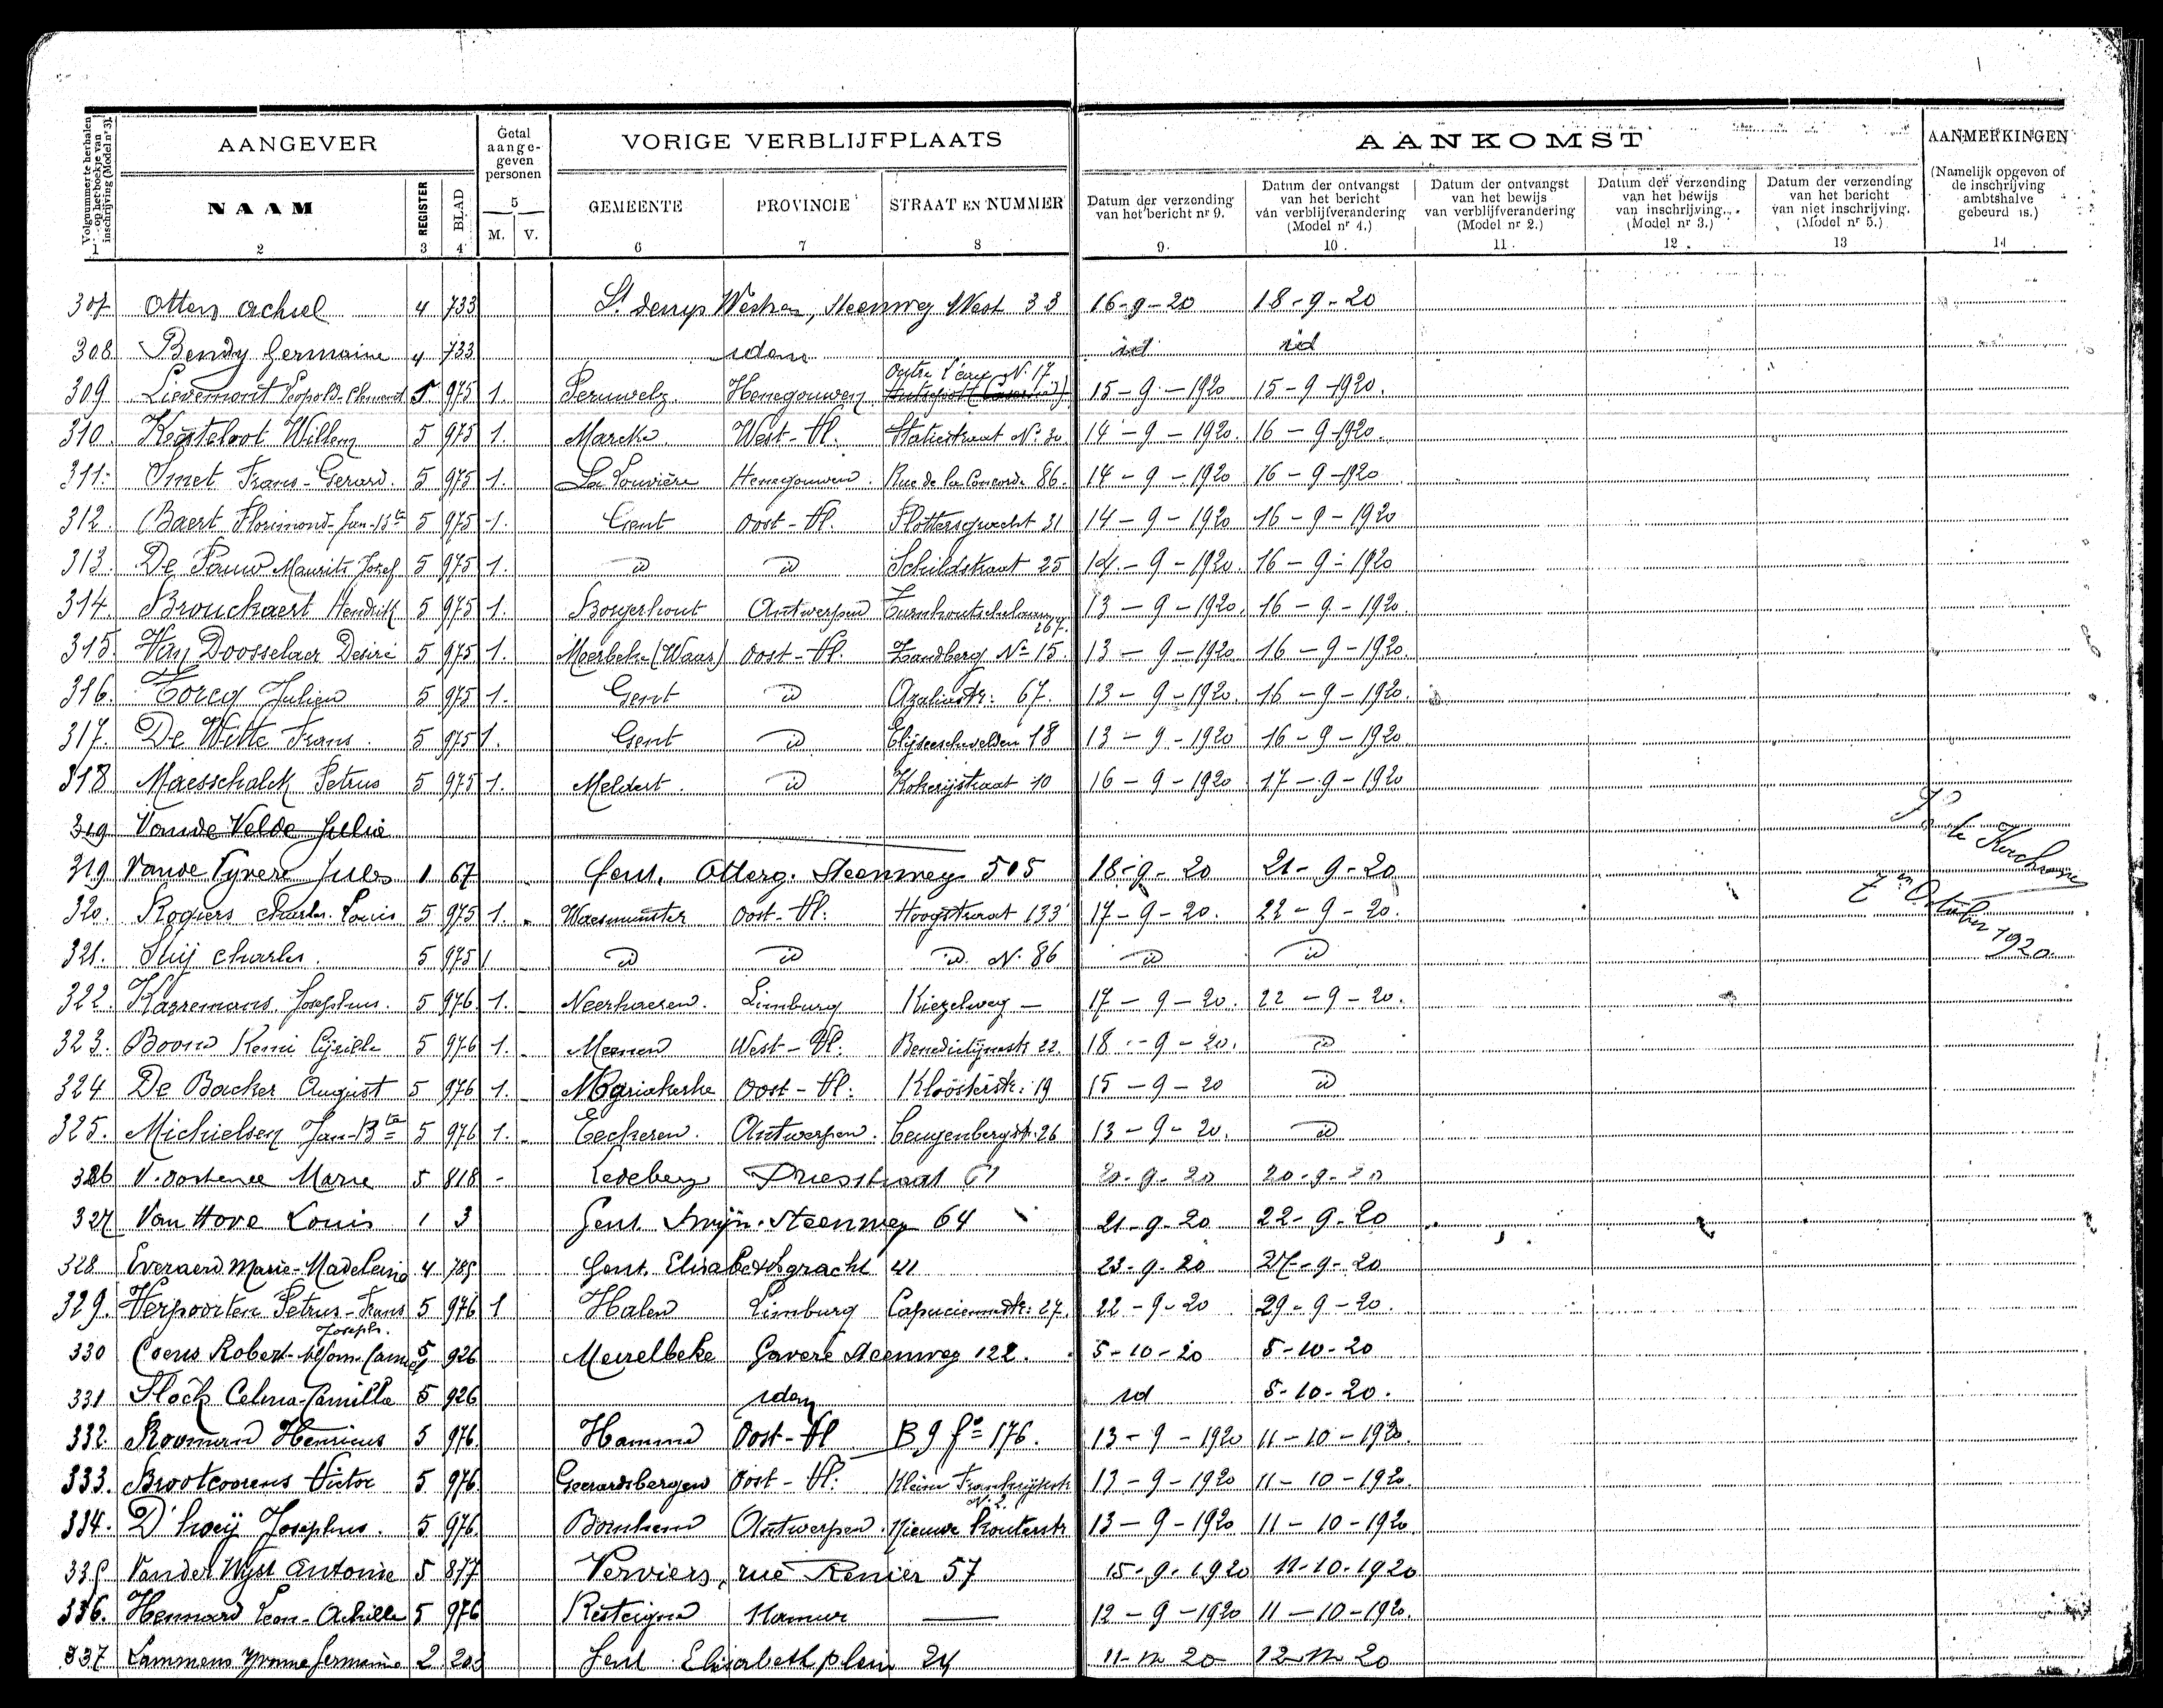 Volgnummer te herhalen op het boekje van inschrijving (Model nr 3).
AANGEVER
Getal aange-geven personen
VORIGE VERBLIJFPLAATS
AANKOMST
AANMERKINGEN
(Namelijk opgeven of de inschrijving ambtshalve gebeurd is.)
NAAM
REGISTER
BLAD
5
M.
V.
GEMEENTE
PROVINCIE
STRAAT EN NUMMER
Datum der verzending van het bericht nr 9.
Datum der ontvangst van het bericht van verblijfverandering (Model nr 4.)
Datum der ontvangst van het bewijs van verblijfverandering (Model nr 2.)
Datum der verzending van het bewijs van inschrijving. (Model nr 3.)
Datum der verzending van het bericht van niet inschrijving. (Model nr 5.)
1 2 3 4 6 7 8 9. 10. 11. 12. 13 14
307 Otten Achiel 4 733 St Denys Westrem, Steenweg West 33 16-9-20 18-9-20
308 Bendy Germaine 4 733 idem id id
Outre l'eau N. 17
309 Lievemont Leopold-Clement 5 975 1. Peruwelz. Henegouwen 15-9-1920 15-9-1920.
310. Kesteloot Willem 5 975 1. Marcke West-Vl. Statiestraat No 30. 14-9-1920. 16-9-1920.
311. Smet Frans-Gerard. 5 975 1. La Louvière Henegouwen. Rue de la Concorde 86. 14-9-1920 16-9-1920
312. Baert Florimond-Jan-Bte 5 975 1. Gent Oost-Vl. 31 14-9-1920 16-9-1920
313. De Pauw Maurits Josef 5 975 1. id id Schildstraat 25 14-9-1920. 16-9-1920
314. Brouckaert Hendrik 5 975 1. Borgerhout Antwerpen Turnhoutschelaan 267. 13-9-1920. 16-9-1920.
315. Van Doosselaer Desiré 5 975 1. Moerbeke (Waas) Oost-Vl. Zandberg No 15. 13-9-1920 16-9-1920.
316. Torcq Julien 5 975 1. Gent id Azaliastr: 67. 13-9-1920. 16-9-1920.
317. De Witte Frans. 5 975 1. Gent id Elijzeeschevelden 18 13-9-1920 16-9-1920
318 Maesschalck Petrus 5 975 1. Meldert. id Kokerijstraat 10 16-9-1920 17-9-1920
319 Van de Velde Julie
319 Van de Vyvere Jules 1 67 Gent. Otterg. Steenweg 505 18-9-20 21-9-20
320. Rogiers Charles. Louis 5 975 1. Waesmunster Oost-Vl: Hoogstraat 133 17-9-20. 22-9-20.
7en October 1920.
321. Charles. 5 975 1 id id id. N. 86 id id
322. Karremans. Josephus. 5 976. 1. Neerhaeren. Limburg Kiezelweg — 17-9-20. 22-9-20.
323. Boone Remi Cyrille 5 976 1. Meenen West-Vl: Benedictijnestr 22. 18-9-20. id
324 De Backer August 5 976 1. Mariakerke Oost-Vl: Kloosterstr: 19 15-9-20 id
325. Michielsen Jan-Bte 5 976 1. Eeckeren. Antwerpen. 26 13-9-20. id
326 V. Oostende Marie 5 818 - Ledeberg Driesstraat 61 20-9-20 20-9-20
327 Van Hove Louis 1 3 Gent Swijn. Steenweg 64 21-9-20 22-9-20
328 Everaerd Marie-Madeleine 4 785 Gent. Elisabethgracht 41 23-9-20 27-9-20
329. Verpoorten Petrus-Frans Joseph. 5 976 1 Halen Limburg Capucienestr: 27. 22-9-20 29-9-20.
330 Coens Robert-Alfons-Camiel 5 926 Meirelbeke Gavere Steenweg 122. 5-10-20 5-10-20
331 Slock Celina-Camilla 5 926 idem id 5-10-20.
332. Rooman Henricus 5 976. Hamme Oost-Vl B 9 fo 176. 13-9-1920 11-10-1920.
333. Brootcoorens Victor 5 976. Geerardsbergen Oost-Vl: Klein Frankrijkstr N. 2. 13-9-1920 11-10-1920.
334. D'hoeij Josephus. 5 976. Bornhem Antwerpen. Nieuwe Kouterstr 13-9-1920 11-10-1920
335 Van der Wyst Antonie 5 877 Verviers, rue Renier 57 15-9-1920 11-10-1920
336. Hennard Leon-Achille 5 976 Resteigne Namur — 12-9-1920 11-10-1920.
337 Lammens Yvonne Germaine 2 203 Gent Elisabethplein 24 11-10 20 12-10 20